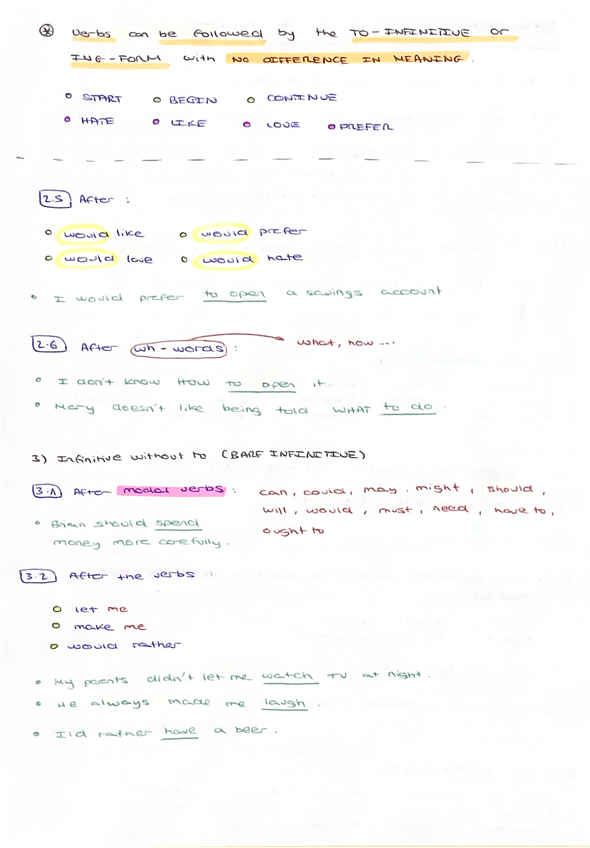 ⊛ Verbs can be followed by the TO-INFINITIVE or
ING-FORM with NO DIFFERENCE IN MEANING.
• START • BEGIN • CONTINUE
• HATE • LIKE • LOVE • PREFER
2.5 After :
• would like • would prefer
• would love • would hate
• I would prefer to open a savings account
2.6 After wh-words : what, how ...
• I don't know HOW to open it.
• Mary doesn't like being told WHAT to do.
3) Infinitive without to (BARE INFINITIVE)
3.1 After modal verbs : can, could, may, might, should,
will, would, must, need, have to,
ought to
• Brian should spend
money more carefully.
3.2 After the verbs :
• let me
• make me
• would rather
• My parents didn't let me watch TV at night.
• He always made me laugh.
• I'd rather have a beer.